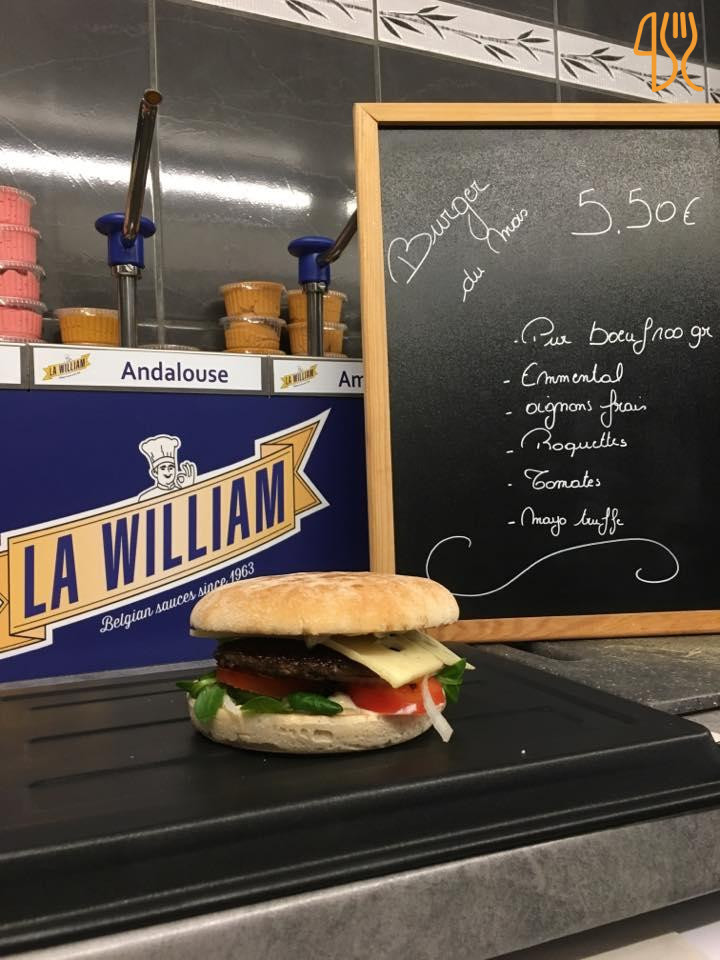 Burger
du mois
5.50€
- Pur boeuf 100 gr
- Emmental
- oignons frais
- Roquettes
- Tomates
- mayo truffe
LA WILLIAM
Andalouse
LA WILLIAM
Am
LA WILLIAM
Belgian sauces since 1963